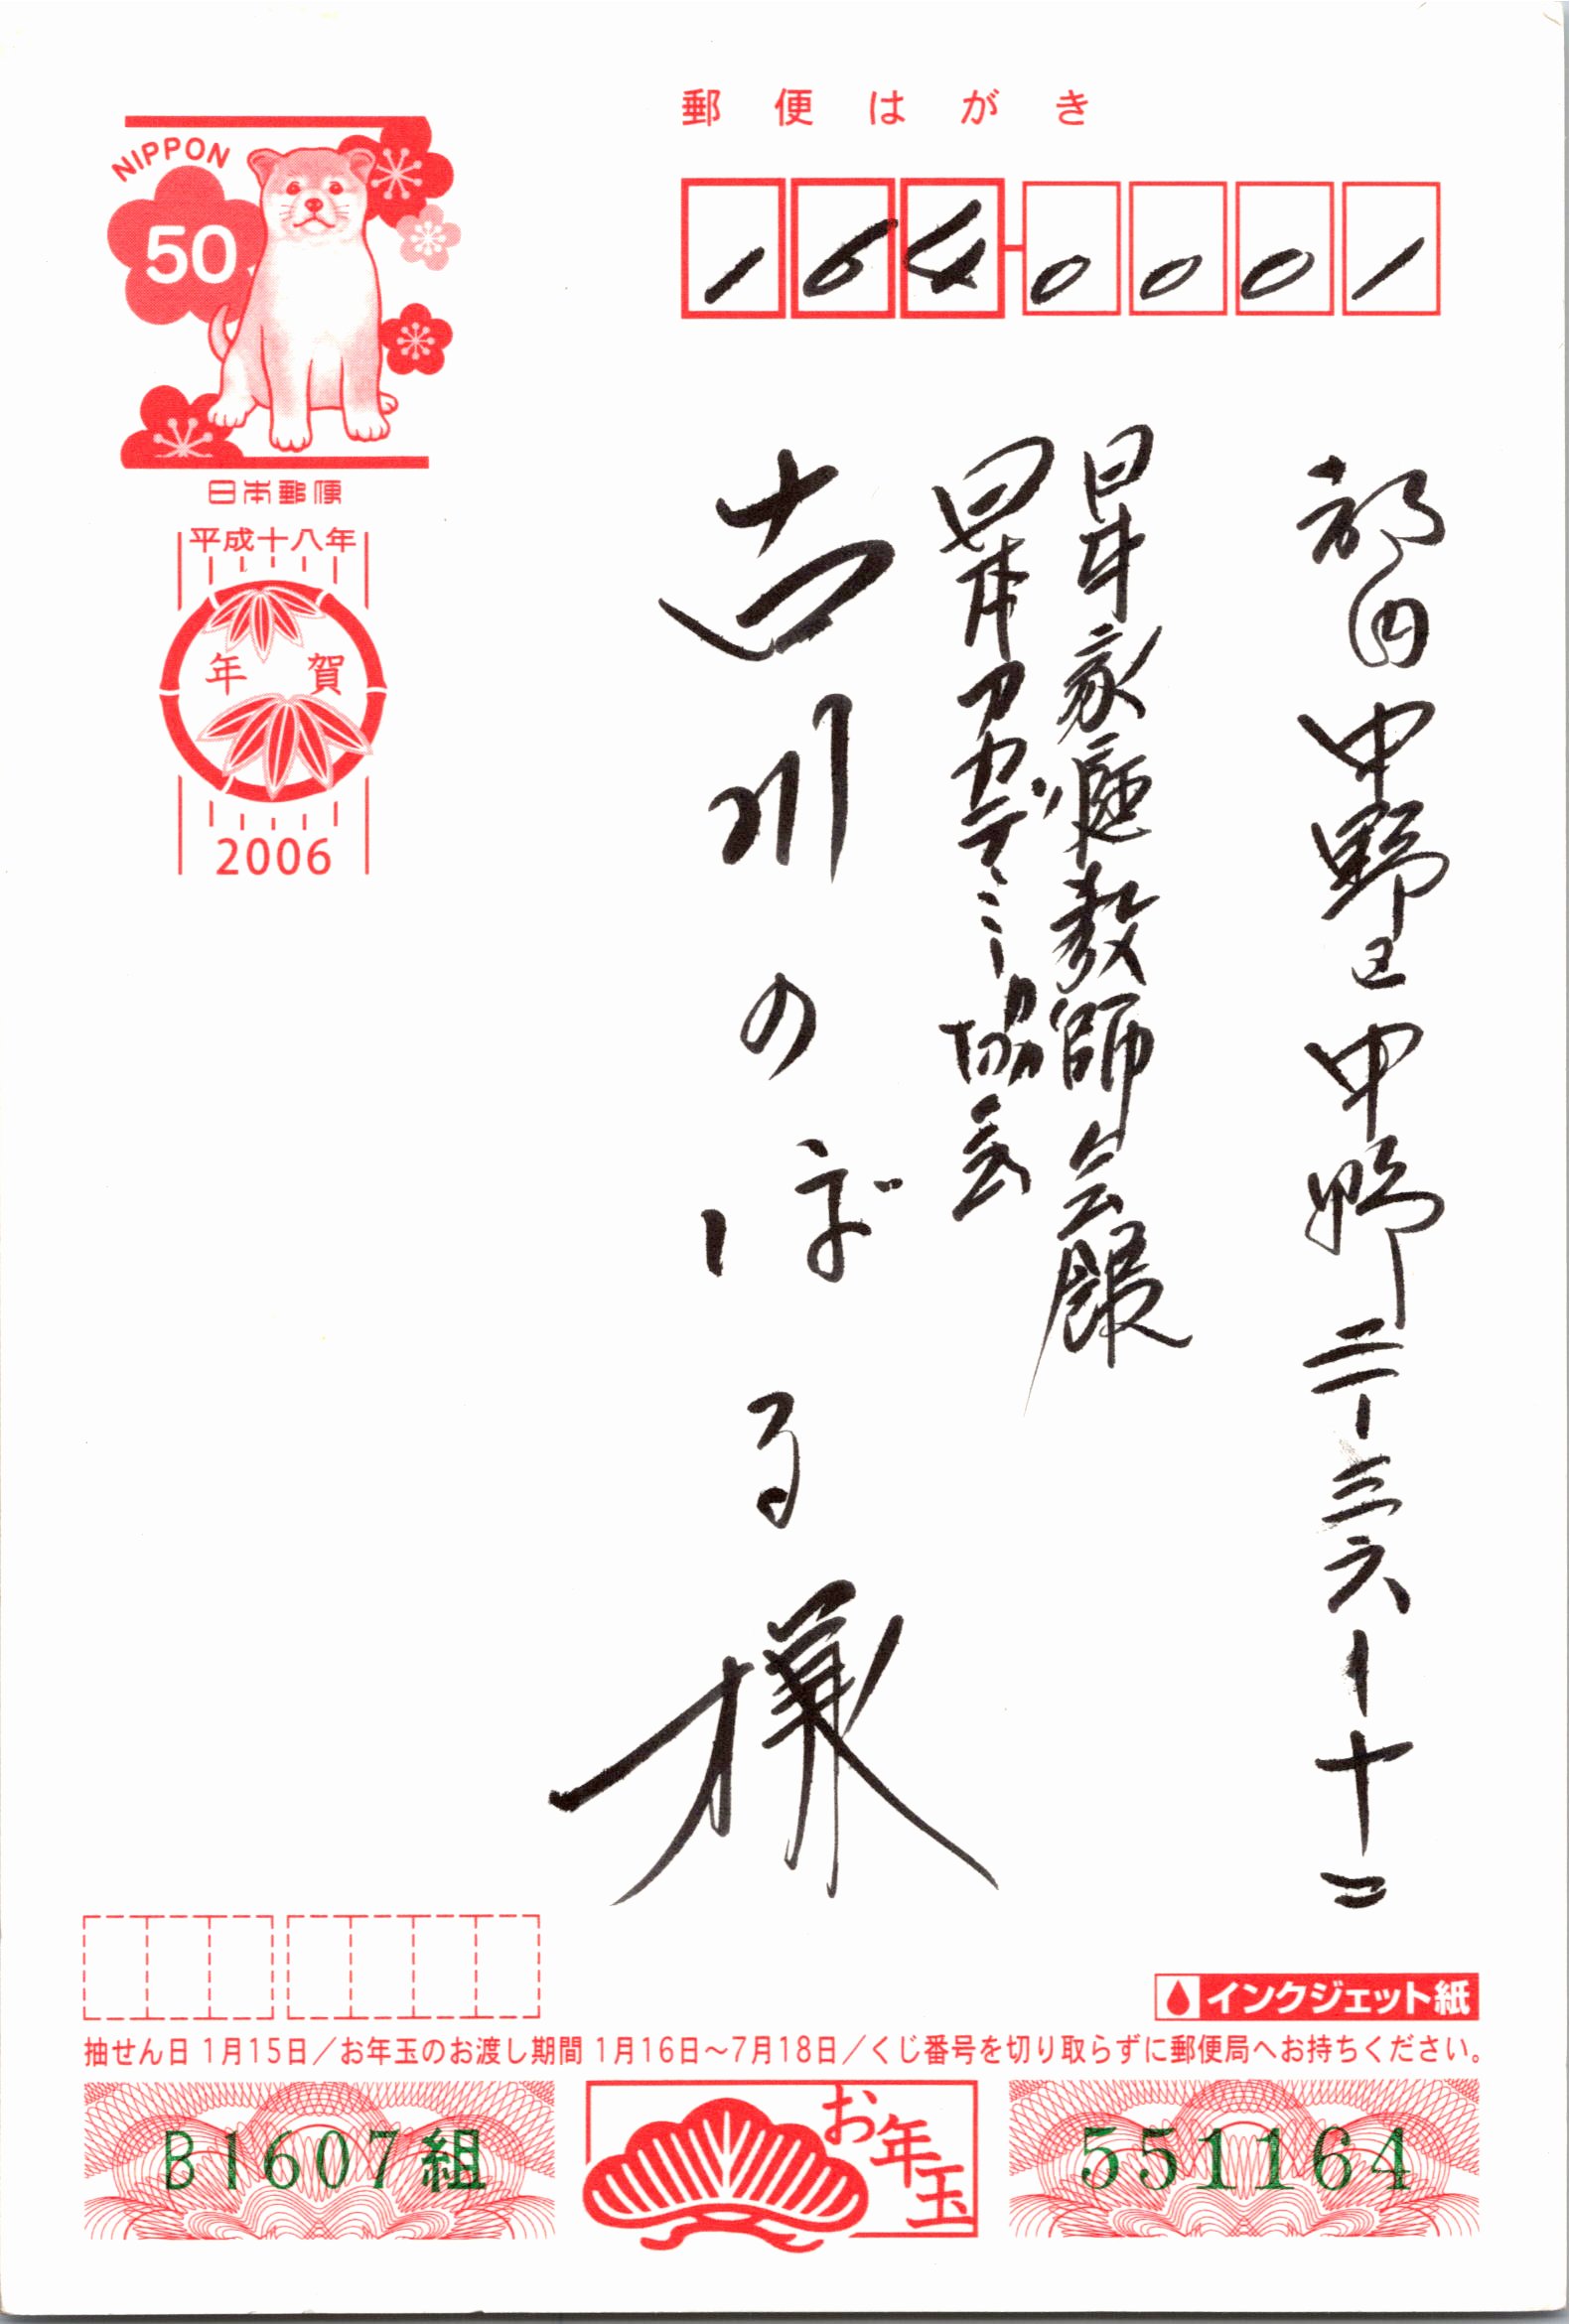 郵便はがき
NIPPON
50
日本郵便
平成十八年
年賀
2006
164-0001
都内中野区中野二-三六-十二
日本家庭教師会館
アカデミー協会
古川のぼる様
インクジェット紙
抽せん日 1月15日／お年玉のお渡し期間 1月16日～7月18日／くじ番号を切り取らずに郵便局へお持ちください。
B1607組
お年玉
551164